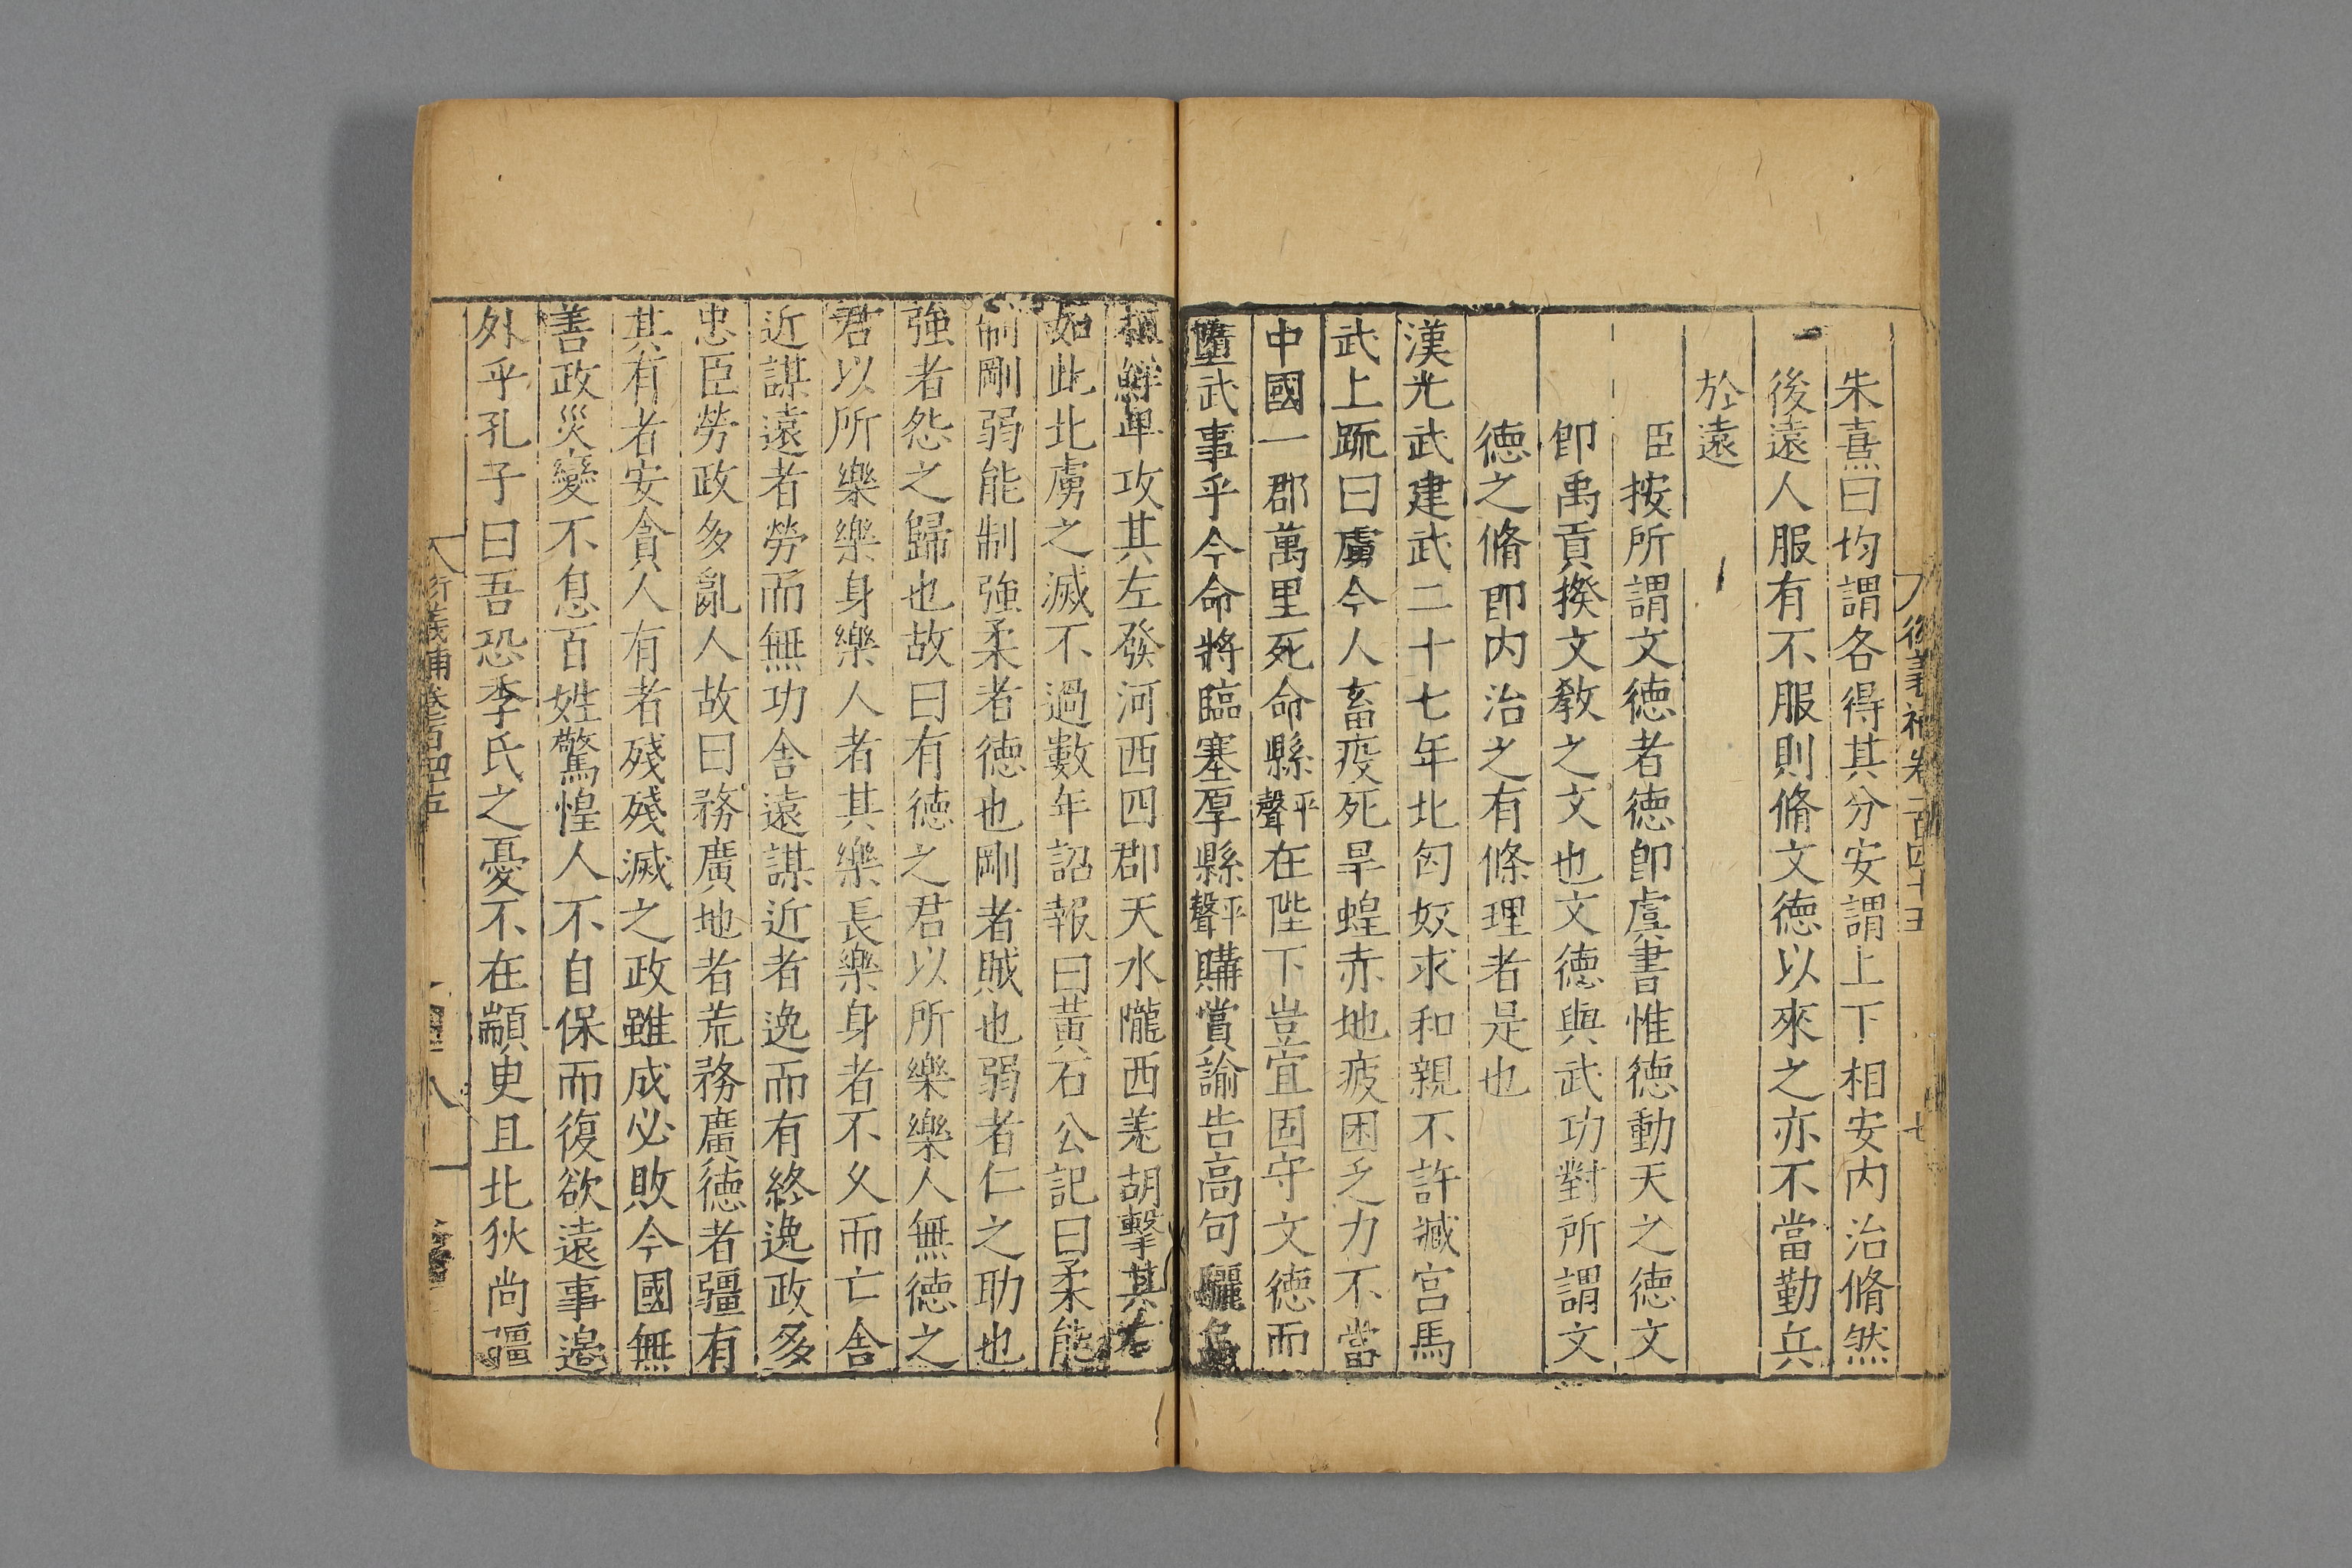 後義補卷一百四十五 七
朱熹曰均謂各得其分安謂上下相安內治脩然
後遠人服有不服則脩文德以來之亦不當勤兵
於遠
臣按所謂文德者德卽虞書惟德動天之德文
卽禹貢揆文敎之文也文德與武功對所謂文
德之脩卽内治之有條理者是也
漢光武建武二十七年北匈奴求和親不許臧宮馬
武上疏曰虜今人畜疫死旱蝗赤地疲困乏力不當
中國一郡萬里死命縣平聲在陛下豈宜固守文德而
墮武事乎今命將臨塞厚縣平聲購賞諭告高句驪烏
桓鮮卑攻其左發河西四郡天水隴西羗胡擊其右
如此北虜之滅不過數年詔報曰黃石公記曰柔能
制剛弱能制強柔者德也剛者賊也弱者仁之助也
強者怨之歸也故曰有德之君以所樂樂人無德之
君以所樂樂身樂人者其樂長樂身者不久而亡舍
近謀遠者勞而無功舍遠謀近者逸而有終逸政多
忠臣勞政多亂人故曰務廣地者荒務廣德者疆有
其有者安貪人有者殘殘滅之政雖成必敗今國無
善政災變不息百姓驚惶人不自保而復欲遠事邉
外乎孔子曰吾恐季氏之憂不在顓臾且北狄尚彊
衍義補卷百四十五 八